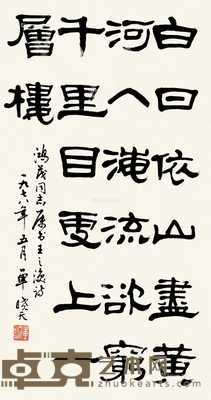 白日依山盡黃
河入海流欲窮
千里目更上一
層樓
鴻茂同志屬书王之渙詩
一九七八年五月 單曉天
卓克艺术网
www.zhuokearts.com